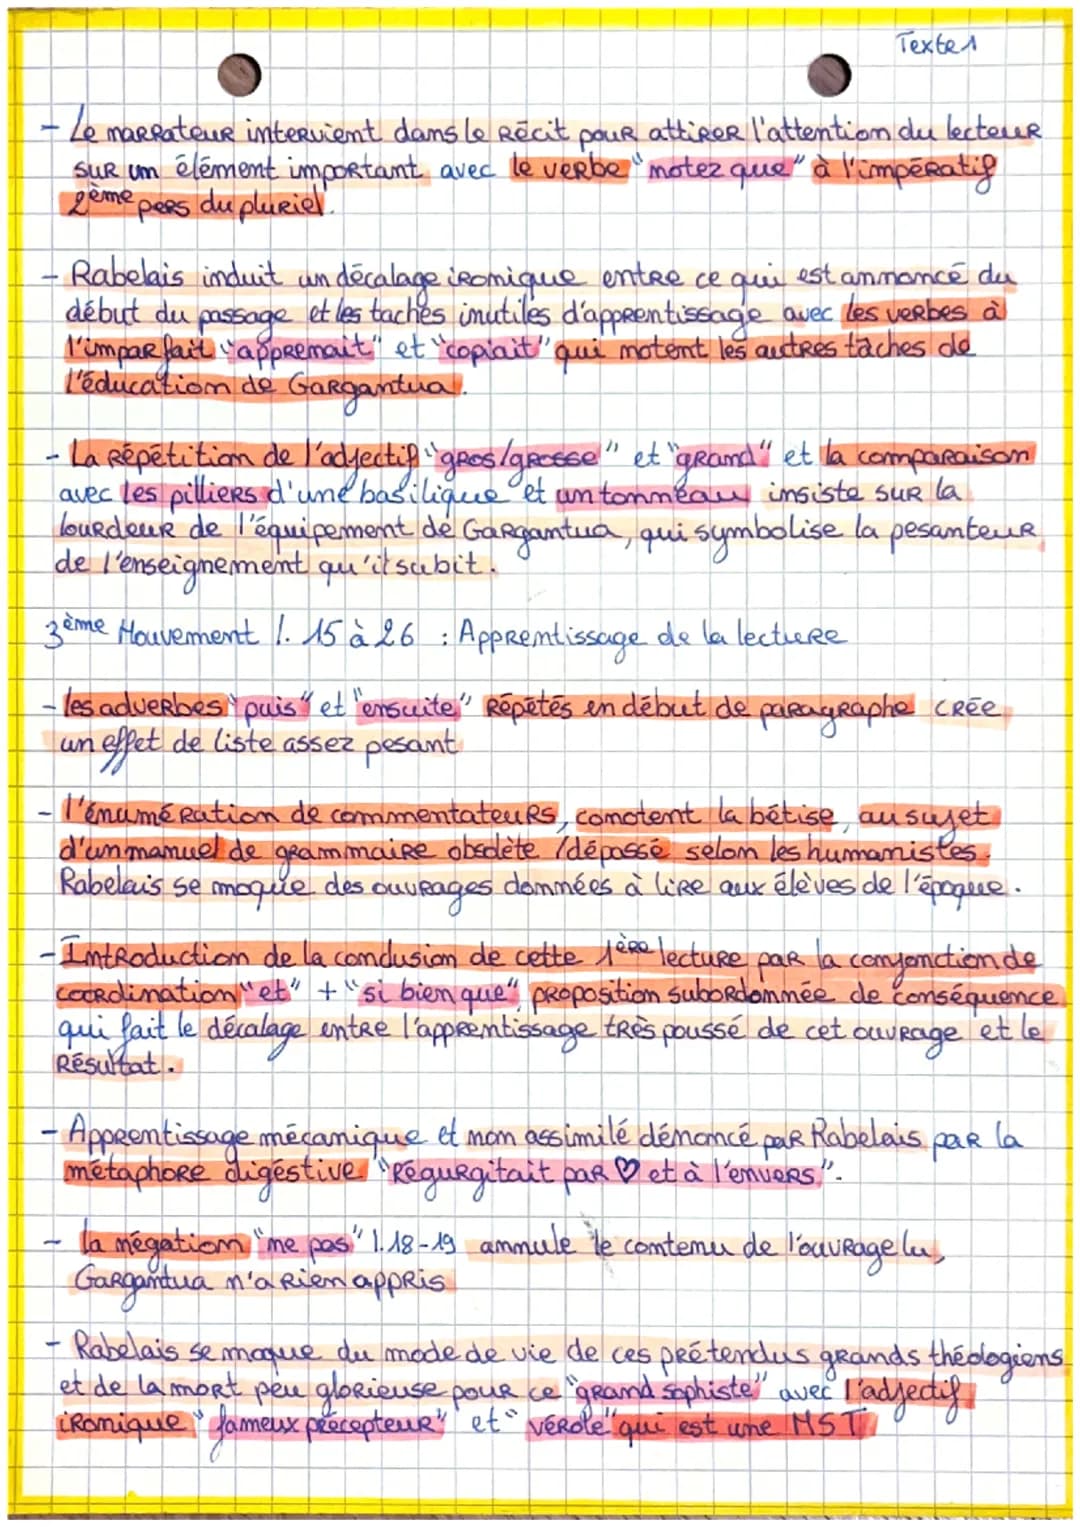 Texte 1
- Le narrateur intervient dans le récit pour attirer l'attention du lecteur
sur un élément important avec le verbe "notez que" à l'impératif
2ème pers du pluriel.
- Rabelais induit un décalage ironique entre ce qui est annoncé du
début du passage et les taches inutiles d'apprentissage avec les verbes à
l'imparfait "apprenait" et "copiait" qui notent les autres tâches de
l'éducation de Gargantua.
- La répétition de l'adjectif "gros/grosse" et "grand" et la comparaison
avec les pilliers d'une basilique et un tonneau insiste sur la
lourdeur de l'équipement de Gargantua, qui symbolise la pesanteur
de l'enseignement qu'il subit.
3ème Mouvement l. 15 à 26 : Apprentissage de la lecture
- les adverbes "puis" et "ensuite" répétés en début de paragraphe crée
un effet de liste assez pesant
- l'énumération de commentateurs, conotent la bétise, au sujet
d'un manuel de grammaire obsolète /dépassé selon les humanistes.
Rabelais se moque des ouvrages données à lire aux élèves de l'époque.
- Introduction de la conclusion de cette 1ère lecture par la conjonction de
coordination "et" + "si bien que" proposition subordonnée de conséquence
qui fait le décalage entre l'apprentissage très poussé de cet ouvrage et le
résultat.
- Apprentissage mécanique et non assimilé dénoncé par Rabelais par la
métaphore digéstive "Régurgitait par ♡ et à l'envers".
- la négation "ne pas" l.18-19 annule le contenu de l'ouvrage lu,
Gargantua n'a rien appris
- Rabelais se moque du mode de vie de ces prétendus grands théologiens
et de la mort peu glorieuse pour ce "grand sophiste" avec l'adjectif
ironique "fameux précepteur" et "vérole" qui est une MST